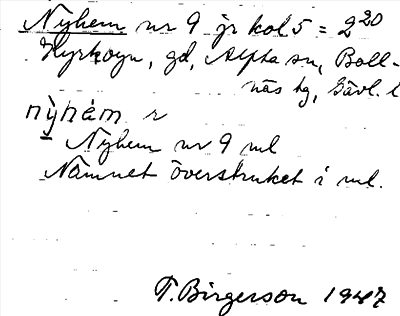 Nyhem nr 9 jr kol 5 = 2²⁰
Hyrkogu, gd, Alfta sn, Boll-
näs tg, Gävl. l
nỳhém r
Nyhem nr 9 ml
Namnet överstruket i ml.
T. Birgerson 1947